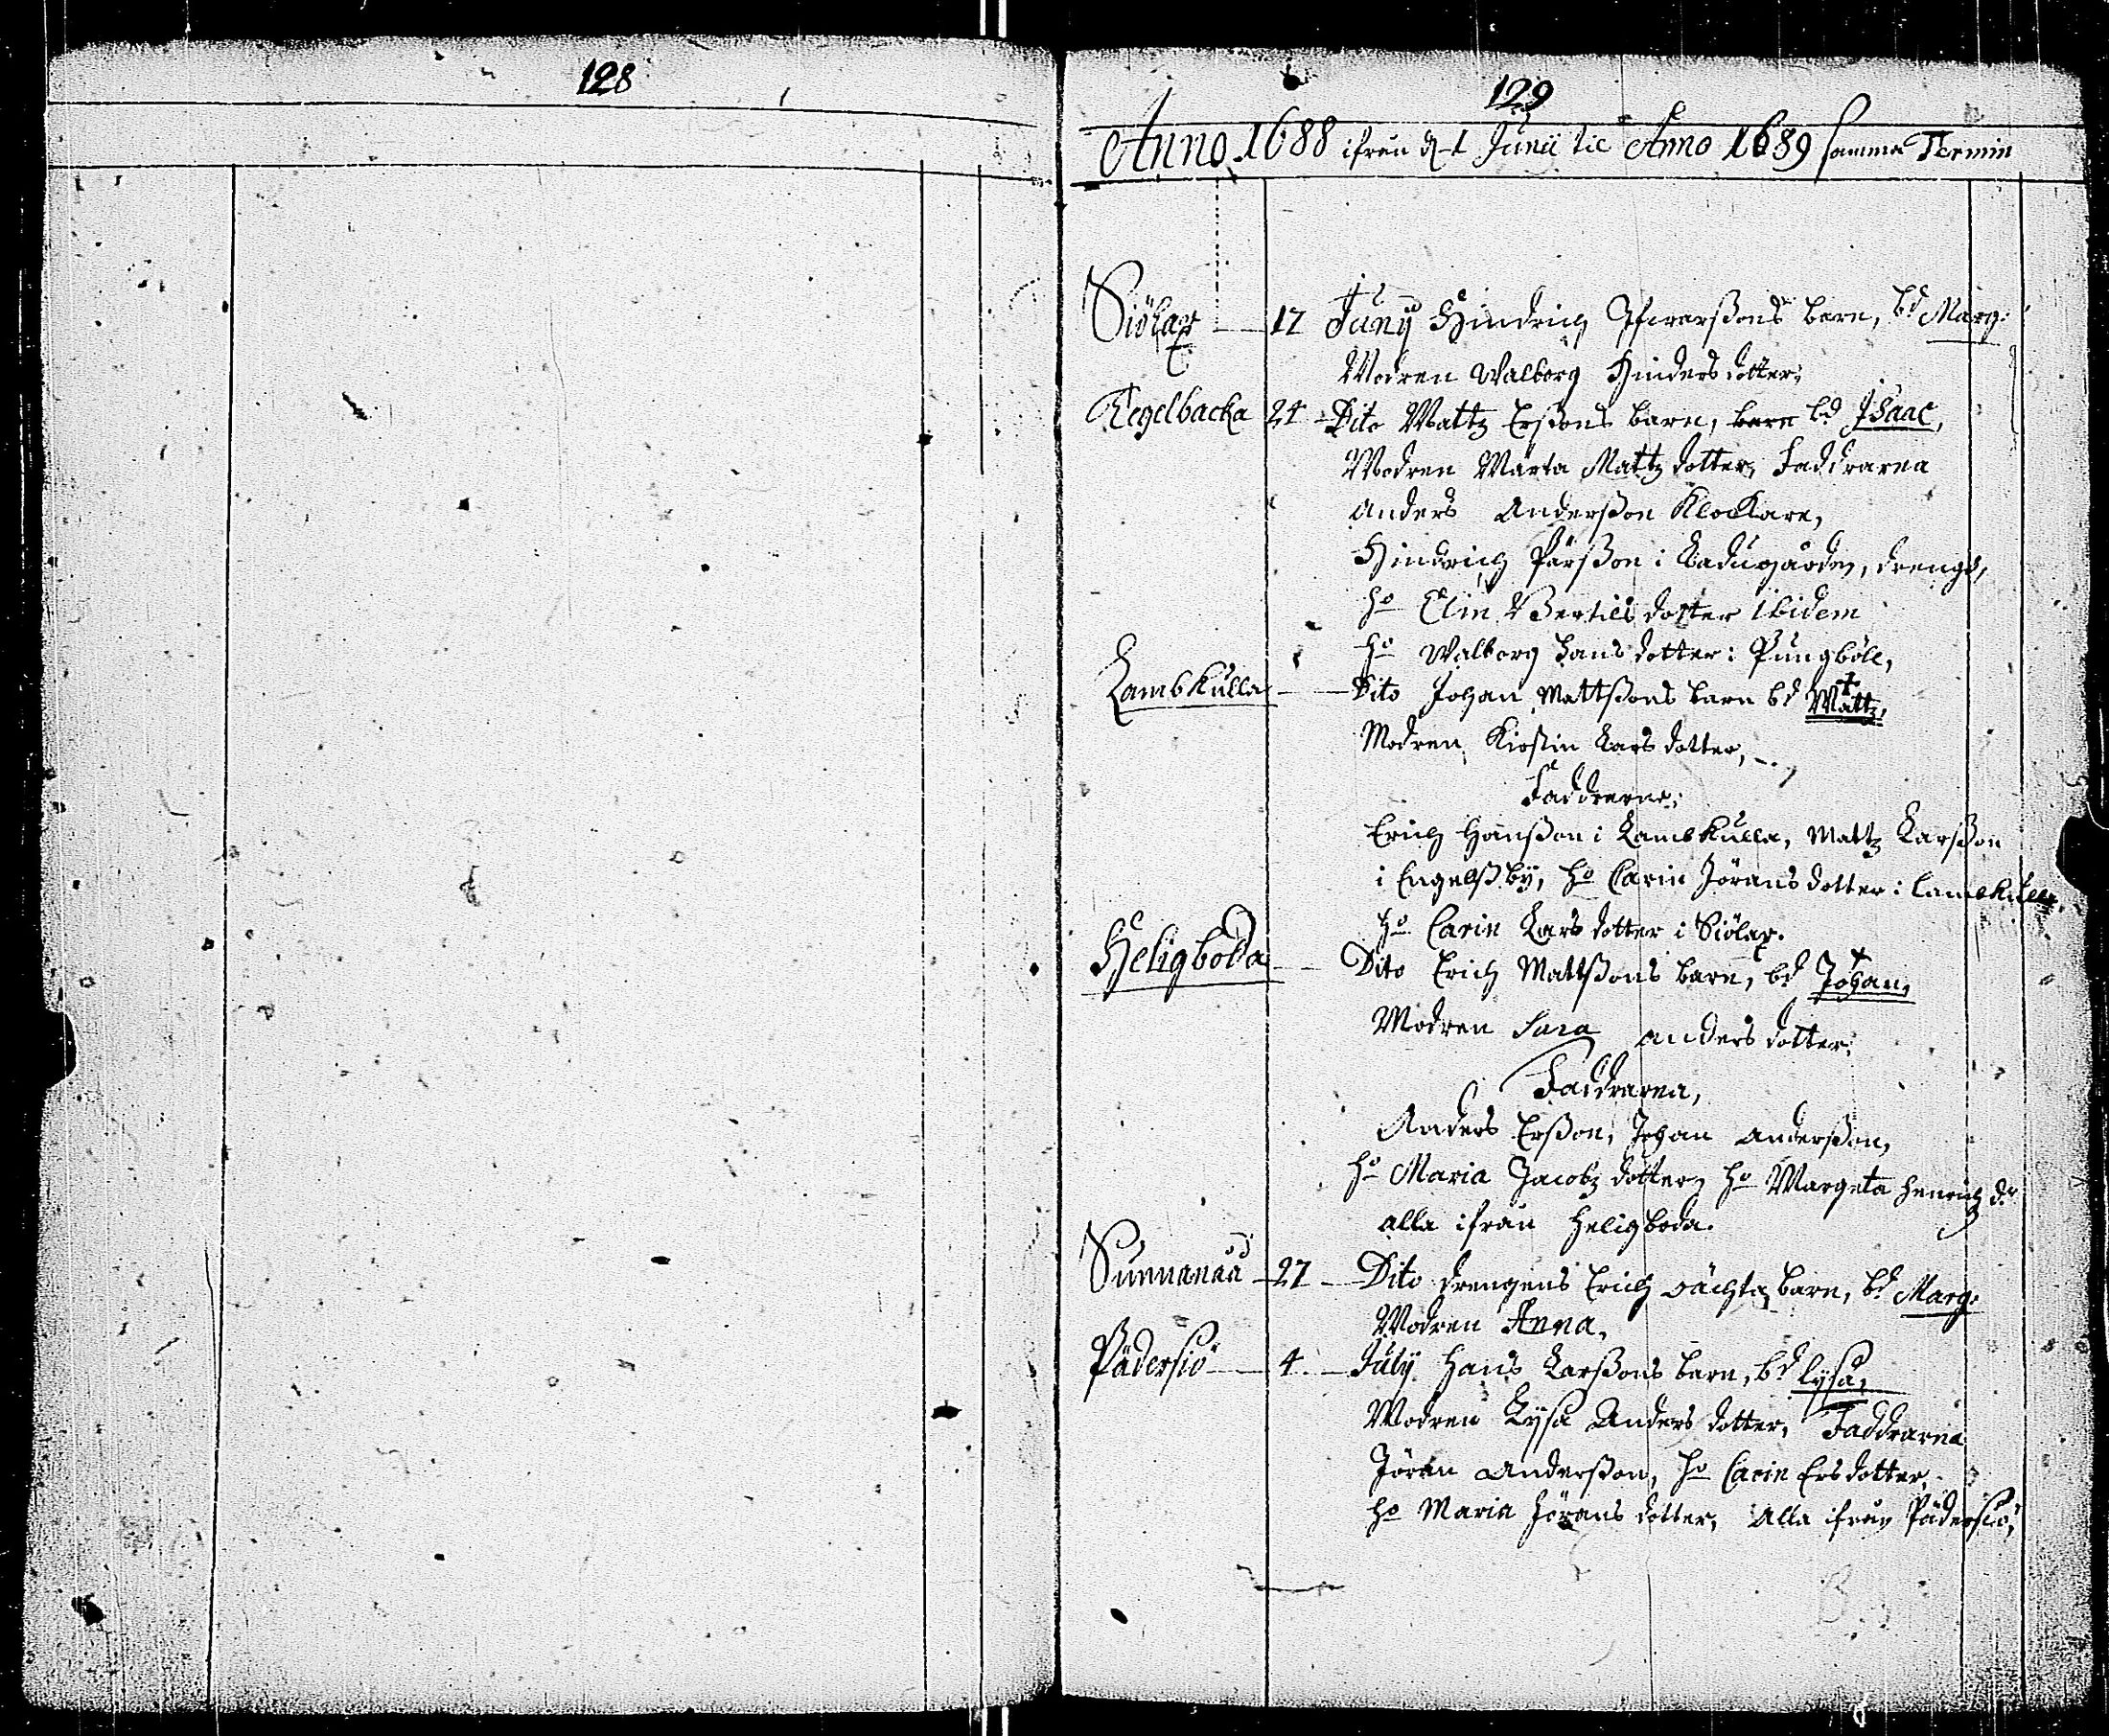 128
129
Anno 1688 ifrån d. 1 Junii til Anno 1689 samma Termin
Siölax 17 Junij Hindrich Ifwarßons barn, bd Marg:
Modren Walborg Hindersdotter,
Tegelbacka 24 Dito Mattz Erßons barn, barn bd Isaac,
Modren Marta Mattz dotter, Faddrarna
Anders Anderßon Klockare,
Hindrich Pärßon i Ladugården, drengs,
ho Elin Bertils dotter ibidem
ho Walborg Hans dotter i Pungböle,
Lambkulla Dito Johan Mattßons barn bd Mattz,
Modren Kirstin Lars dotter,
Faddrarne,
Erich Hanßon i Lambkulla, Mattz Larßon
i Engelßby, ho Carin Jörans dotter i Lambkulla,
ho Carin Lars dotter i Siölax.
Heligboda Dito Erich Mattßons barn, bd Johan,
Modren Sara Anders dotter,
Faddrarna,
Anders Erßon, Johan Anderßon,
ho Maria Jacobz dotter, ho Margeta Henrichz dr
alla ifrån Heligboda.
Sunnanåå 27 Dito drengens Erich barn, bd Marg:
Modren Anna,
Pädersiö 4. Julij Hans Larßons barn, bd Lysa,
Modren Lysa Anders dotter, Faddrarna
Jöran Anderßon, ho Carin Ers dotter,
ho Maria Jörans dotter, Alla ifrån Pädersiö,